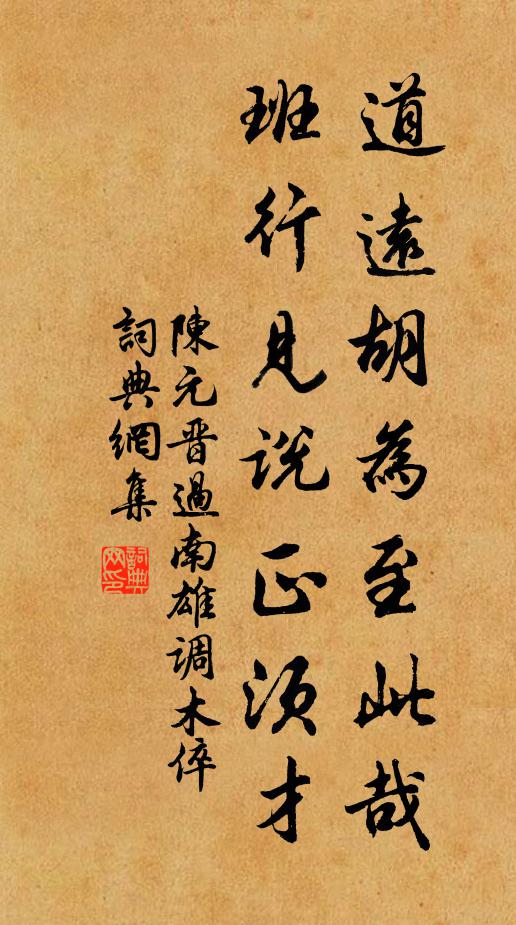 道遠胡為至此哉
班行見說正須才
陳元晋過南雄調木倅
詞典網集
詞典网印